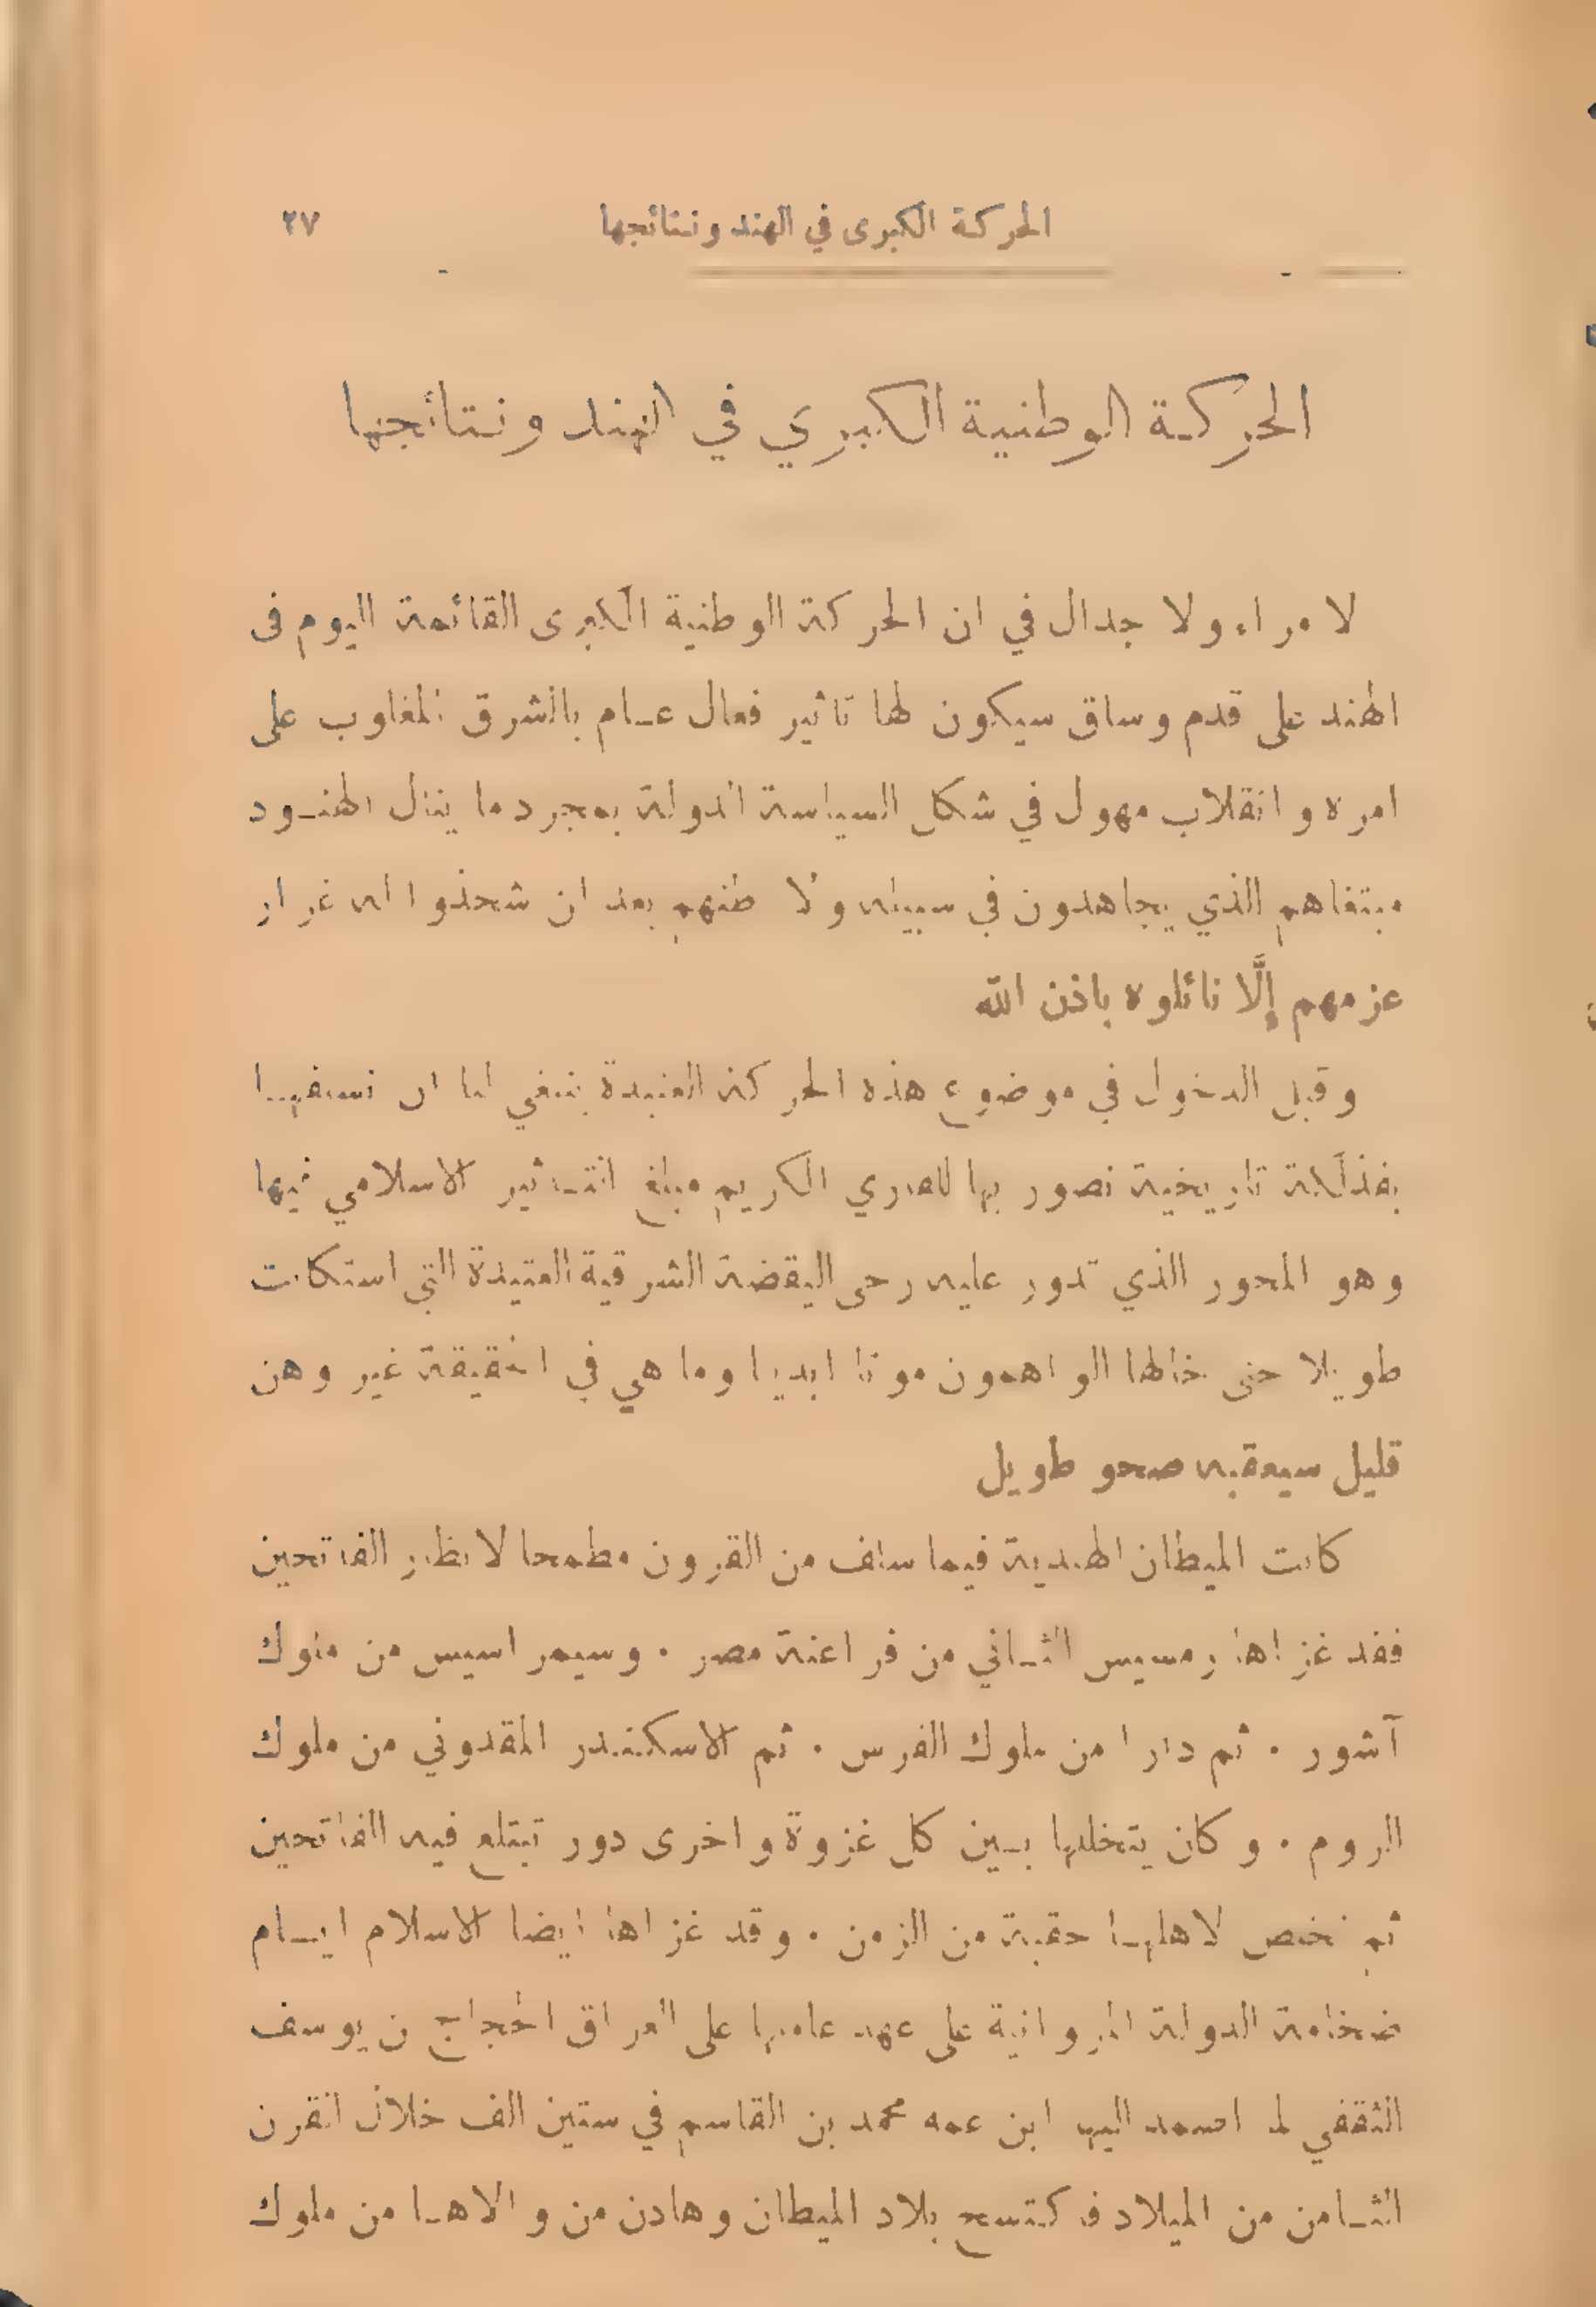 الحركة الكبرى في الهند ونتائجها ٢٧
الحركة الوطنية الكبري في الهند ونتائجها
لا مراء ولا جدال في ان الحركة الوطنية الكبرى القائمة اليوم فى
الهند على قدم وساق سيكون لها تاثير فعال عام بالشرق المغلوب على
امره وانقلاب مهول في شكل السياسة الدولة بمجرد ما ينال الهنود
مبتغاهم الذي يجاهدون في سبيله ولا طنهم بعد ان شحذوا له غرار
عزمهم إلَّا نائلوه باذن الله
وقبل الدخول في موضوع هذه الحركة العنيدة ينبغي لنا ان نسبقها
بفذلكة تاريخية نصور بها للقاري الكريم مبلغ التأثير الاسلامي فيها
وهو المحور الذي تدور عليه رحى اليقضة الشرقية العتيدة التي استكانت
طويلا حتى خالها الواهمون موتا ابديا وما هي في الحقيقة غير وهن
قليل سيعقبه صحو طويل
كانت الميطان الهندية فيما سلف من القرون مطمحا لانظار الفاتحين
فقد غزاها رمسيس الثاني من فراعنة مصر . وسيمراسيس من ملوك
آشور . ثم دارا من ملوك الفرس . ثم الاسكندر المقدوني من ملوك
الروم . وكان يتخللها بين كل غزوة واخرى دور تبتلع فيه الفاتحين
ثم تخلص لاهلها حقبة من الزمن . وقد غزاها ايضا الاسلام ايام
ضخامة الدولة المروانية على عهد عاملها على العراق الحجاج بن يوسف
الثقفي لما اصمد اليها ابن عمه محمد بن القاسم في ستين الف خلال القرن
الثامن من الميلاد فاكتسح بلاد الميطان وهادن من والاها من ملوك